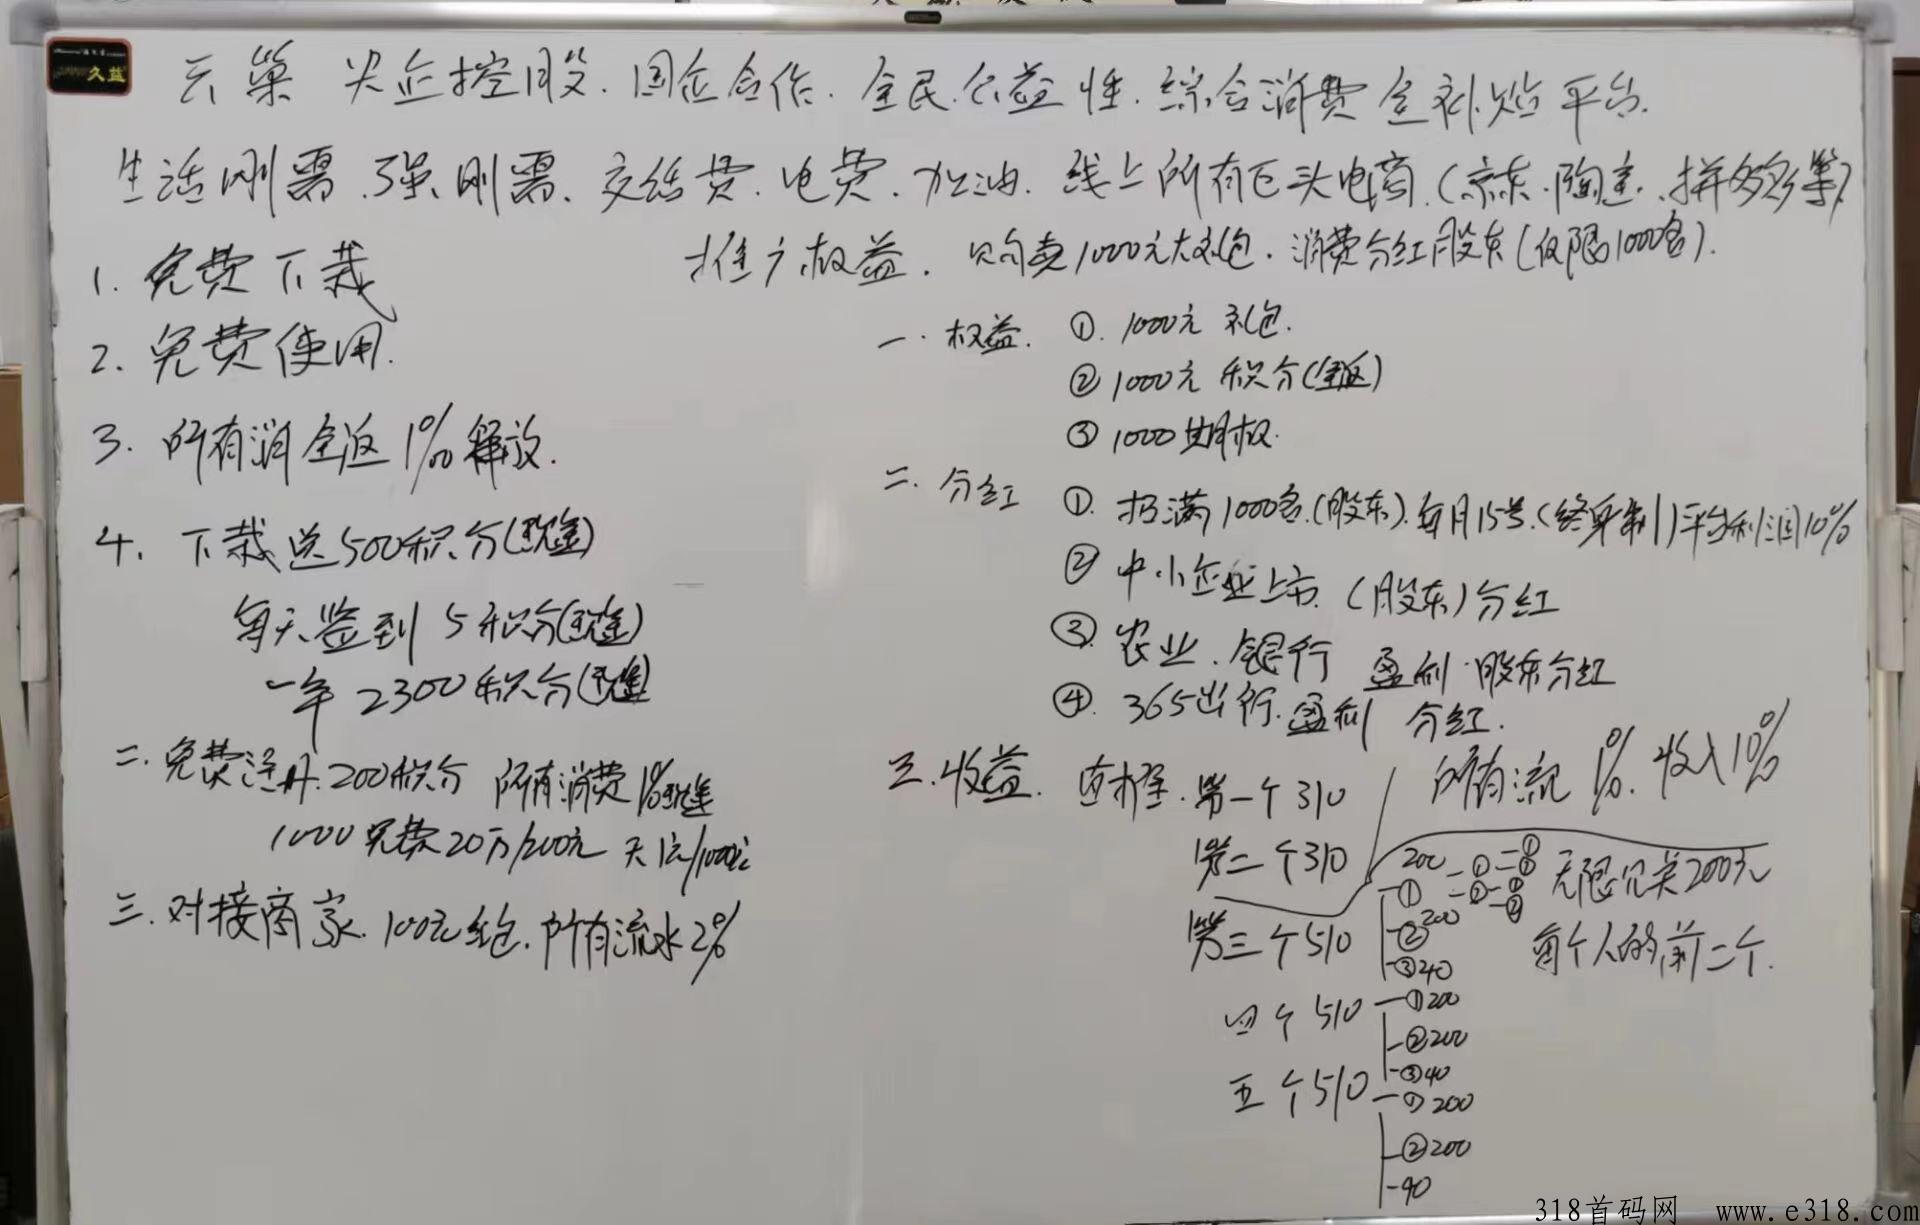 久益
云巢 央企控股.国企合作.全民公益性.综合消费全补贴平台.
生活刚需.强刚需.交话费.电费.加油.线上所有巨头电商.(京东.陶宝.拼多多等)
推广权益.只有卖1000元大礼包.消费分红股东(仅限1000名).
1. 免费下载
2. 免费使用.
3. 所有消全返1‰释放.
4. 下载送500积分(现金)
每天签到5积分(现金)
一年2300积分(现金)
二.免费注册.200积分 所有消费1‰现金
1000免费20万/200元 天1元/1000元
三.对接商家.100元红包.所有流水2%
一.权益. ①.1000元礼包.
②1000元积分(全返)
③1000期权.
二.分红 ①.招满1000名.(股东).每月15号.(终身制)平台利润10%
② 中小企业上市.(股东)分红
③.农业.银行 盈利.股东分红
④.365出行.盈利 分红.
三.收益. 直推.第一个310 所有流 1‰.收入10%
第二个310
第三个510
四个510
五个510
200
① ②200 ③40
①200
②200
③40
①200
②200
-40
无限见关200元
每个人的前二个.
318首码网 www.e318.com